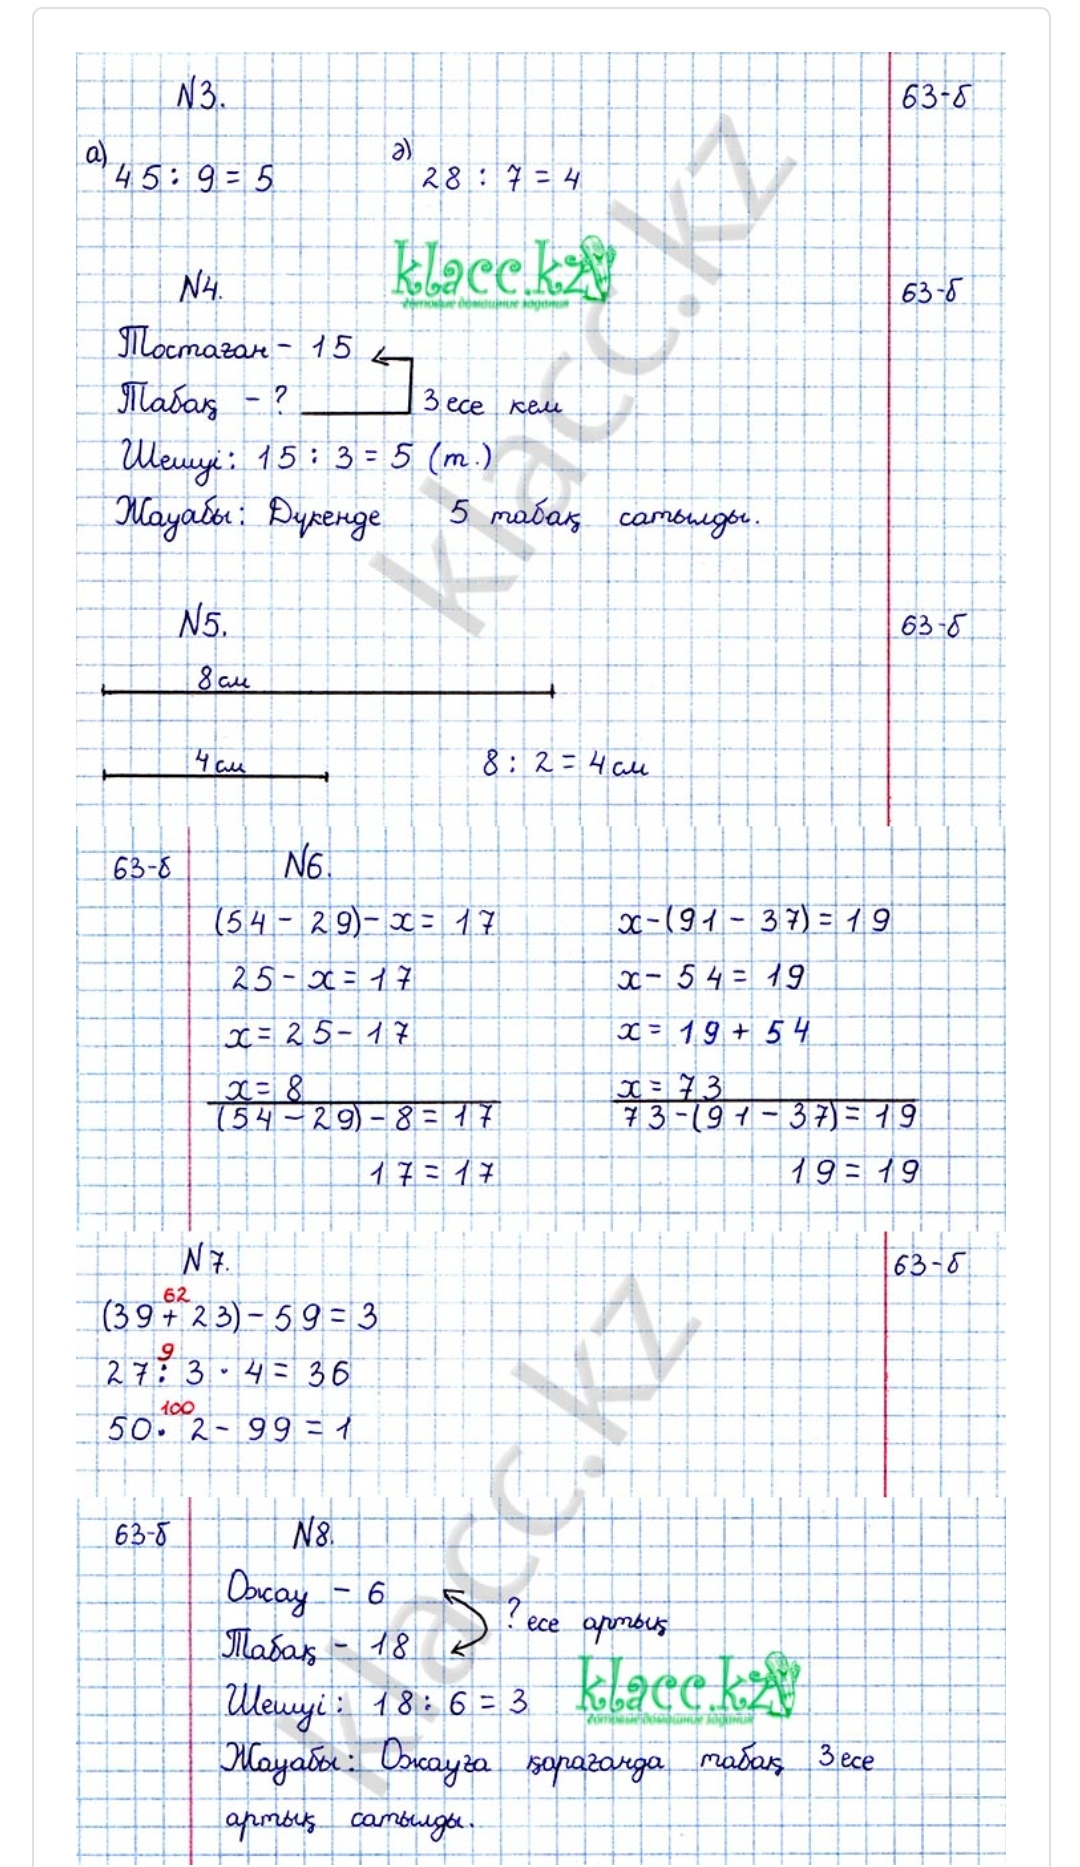 N3. 63-б
а) 45 : 9 = 5 ә) 28 : 7 = 4
klacc.kz
готовые домашние задания
N4. 63-б
Тостаған - 15
Табақ - ? 3 есе кем
Шешуі: 15 : 3 = 5 (т.)
Жауабы: Дүкенде 5 табақ сатылды.
klacc.kz
N5. 63-б
8 см
4 см 8 : 2 = 4 см
63-б N6.
(54 - 29) - x = 17 x - (91 - 37) = 19
25 - x = 17 x - 54 = 19
x = 25 - 17 x = 19 + 54
x = 8 x = 73
(54 - 29) - 8 = 17 73 - (91 - 37) = 19
17 = 17 19 = 19
N7. 63-б
62
(39 + 23) - 59 = 3
9
27 : 3 · 4 = 36
100
50 · 2 - 99 = 1
klacc.kz
63-б N8.
Ожау - 6
? есе артық
Табақ - 18
klacc.kz
готовые домашние задания
Шешуі: 18 : 6 = 3
Жауабы: Ожауға қарағанда табақ 3 есе
артық сатылды.